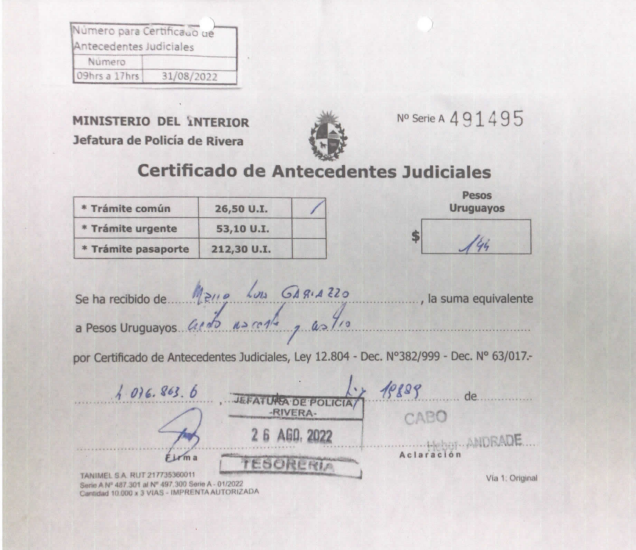 Número para Certificado de
Antecedentes Judiciales
Número
09hrs a 17hrs 31/08/2022
MINISTERIO DEL INTERIOR
Jefatura de Policía de Rivera
Nº Serie A 491495
Certificado de Antecedentes Judiciales
* Trámite común 26,50 U.I. /
* Trámite urgente 53,10 U.I.
* Trámite pasaporte 212,30 U.I.
Pesos
Uruguayos
$ 144
Se ha recibido de Mario Luis GABIAZZO, la suma equivalente
a Pesos Uruguayos ciento cuarenta y cuatro
por Certificado de Antecedentes Judiciales, Ley 12.804 - Dec. Nº382/999 - Dec. Nº 63/017.-
4 076.863.6, Ley 19889 de
JEFATURA DE POLICIA
-RIVERA-
26 AGO. 2022
TESORERIA
CABO
Heber ANDRADE
Firma
Aclaración
TANIMEL S.A. RUT 217735360011
Serie A Nº 487.301 al Nº 497.300 Serie A - 01/2022
Cantidad 10.000 x 3 VIAS - IMPRENTA AUTORIZADA
Vía 1: Original